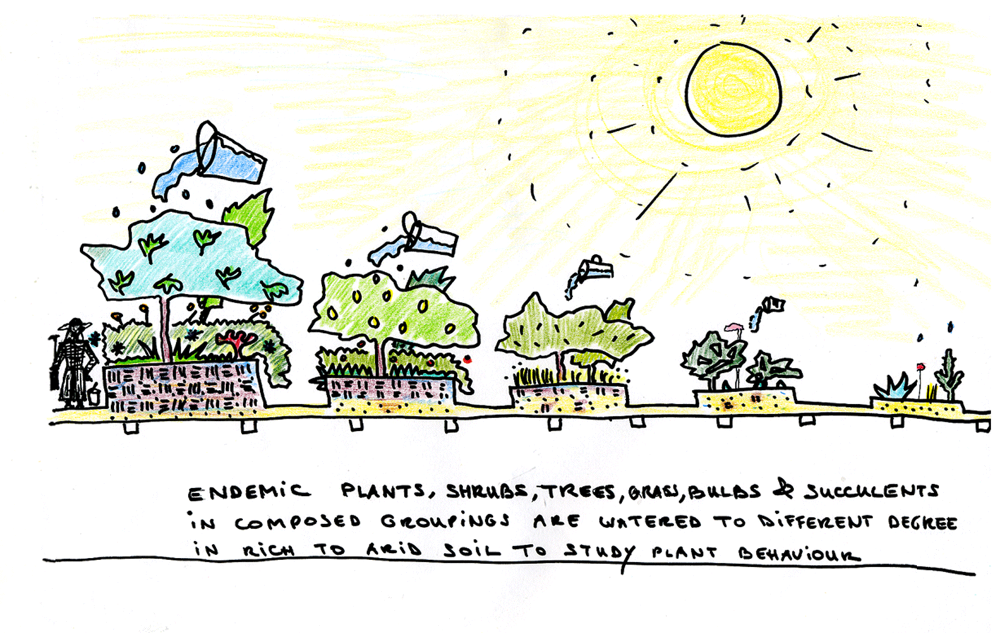 ENDEMIC PLANTS, SHRUBS, TREES, GRASS, BULBS & SUCCULENTS
IN COMPOSED GROUPINGS ARE WATERED TO DIFFERENT DEGREE
IN RICH TO ARID SOIL TO STUDY PLANT BEHAVIOUR